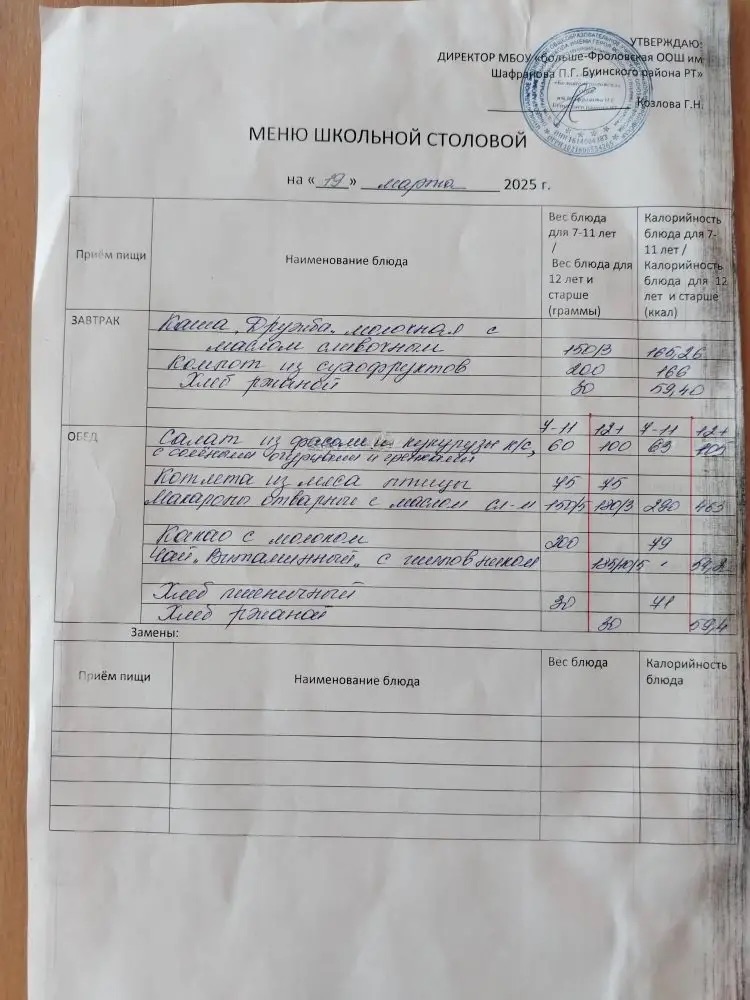 УТВЕРЖДАЮ:
ДИРЕКТОР МБОУ «Больше-Фроловская ООШ им
Шафранова П.Г. Буинского района РТ»
Козлова Г.Н.
МЕНЮ ШКОЛЬНОЙ СТОЛОВОЙ
на « 19 » марта 2025 г.
Приём пищи
Наименование блюда
Вес блюда
для 7-11 лет
/
Вес блюда для
12 лет и
старше
(граммы)
Калорийность
блюда для 7-
11 лет /
Калорийность
блюда для 12
лет и старше
(ккал)
ЗАВТРАК
Каша „Дружба" молочная с
маслом сливочным 150/3 165,26
Компот из сухофруктов 200 166
Хлеб ржаной 30 59,40
7-11 12+ 7-11 12+
ОБЕД
Салат из фасоли и кукурузы к/с, 60 100 63 105
с солёными огурцами и гренками
Котлета из мяса птицы 75 75
Макароны отварные с маслом сл-м 150/5 180/3 290 463
Какао с молоком 200 79
Чай „Витаминный" с шиповником
Хлеб пшеничный 30 71
Хлеб ржаной 30 59,4
Замены:
Приём пищи
Наименование блюда
Вес блюда
Калорийность
блюда